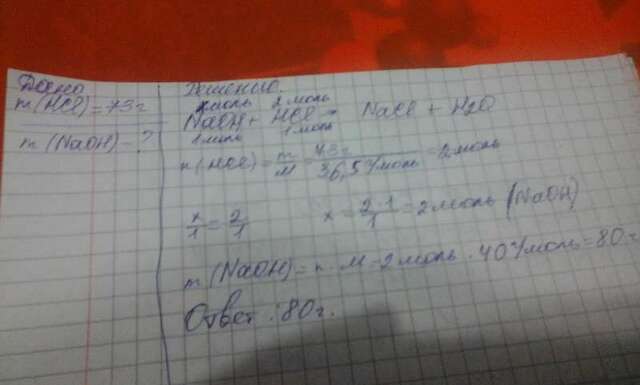 Дано
m(HCl)=73г
m(NaOH)-?
Решение.
x моль 2 моль
NaOH + HCl → NaCl + H2O
1 моль 1 моль
n(HCl) = m/M = 73г/36,5г/моль = 2 моль
x/1 = 2/1 x = 2·1/1 = 2 моль (NaOH)
m(NaOH) = n·M = 2 моль · 40г/моль = 80г
Ответ: 80г.